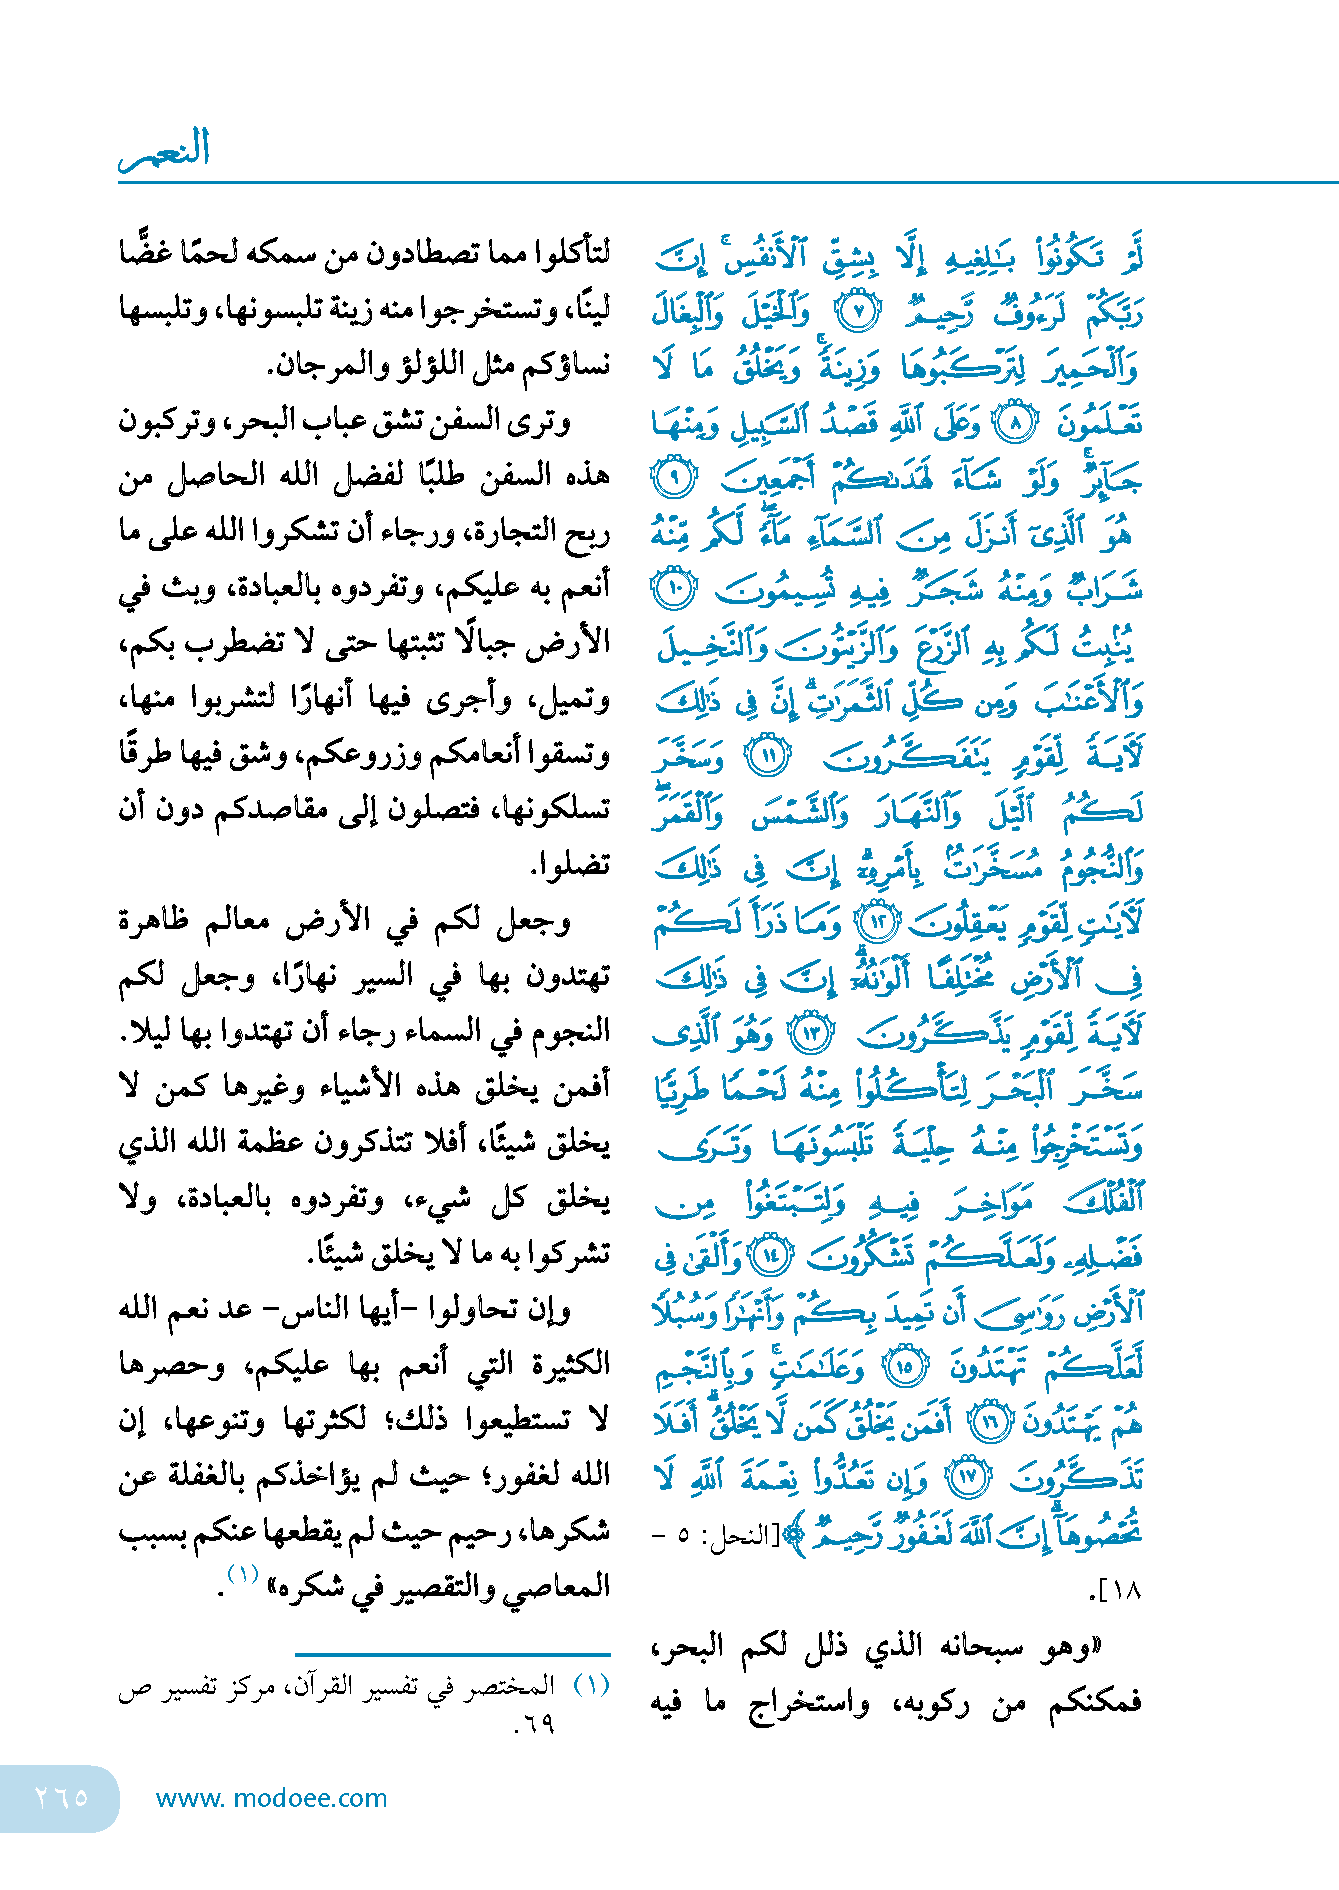 النعم
لَّمْ تَكُونُوا۟ بَٰلِغِيهِ إِلَّا بِشِقِّ ٱلْأَنفُسِ ۚ إِنَّ
رَبَّكُمْ لَرَءُوفٌ رَّحِيمٌ ٧ وَٱلْخَيْلَ وَٱلْبِغَالَ
وَٱلْحَمِيرَ لِتَرْكَبُوهَا وَزِينَةً ۚ وَيَخْلُقُ مَا لَا
تَعْلَمُونَ ٨ وَعَلَى ٱللَّهِ قَصْدُ ٱلسَّبِيلِ وَمِنْهَا
جَآئِرٌ ۚ وَلَوْ شَآءَ لَهَدَىٰكُمْ أَجْمَعِينَ ٩
هُوَ ٱلَّذِىٓ أَنزَلَ مِنَ ٱلسَّمَآءِ مَآءً ۖ لَّكُم مِّنْهُ
شَرَابٌ وَمِنْهُ شَجَرٌ فِيهِ تُسِيمُونَ ١٠
يُنۢبِتُ لَكُم بِهِ ٱلزَّرْعَ وَٱلزَّيْتُونَ وَٱلنَّخِيلَ
وَٱلْأَعْنَٰبَ وَمِن كُلِّ ٱلثَّمَرَٰتِ ۗ إِنَّ فِى ذَٰلِكَ
لَءَايَةً لِّقَوْمٍ يَتَفَكَّرُونَ ١١ وَسَخَّرَ
لَكُمُ ٱلَّيْلَ وَٱلنَّهَارَ وَٱلشَّمْسَ وَٱلْقَمَرَ ۖ
وَٱلنُّجُومُ مُسَخَّرَٰتٌۢ بِأَمْرِهِۦٓ ۗ إِنَّ فِى ذَٰلِكَ
لَءَايَٰتٍ لِّقَوْمٍ يَعْقِلُونَ ١٢ وَمَا ذَرَأَ لَكُمْ
فِى ٱلْأَرْضِ مُخْتَلِفًا أَلْوَٰنُهُۥٓ ۗ إِنَّ فِى ذَٰلِكَ
لَءَايَةً لِّقَوْمٍ يَذَّكَّرُونَ ١٣ وَهُوَ ٱلَّذِى
سَخَّرَ ٱلْبَحْرَ لِتَأْكُلُوا۟ مِنْهُ لَحْمًا طَرِيًّا
وَتَسْتَخْرِجُوا۟ مِنْهُ حِلْيَةً تَلْبَسُونَهَا وَتَرَى
ٱلْفُلْكَ مَوَاخِرَ فِيهِ وَلِتَبْتَغُوا۟ مِن
فَضْلِهِۦ وَلَعَلَّكُمْ تَشْكُرُونَ ١٤ وَأَلْقَىٰ فِى
ٱلْأَرْضِ رَوَٰسِىَ أَن تَمِيدَ بِكُمْ وَأَنْهَٰرًا وَسُبُلًا
لَّعَلَّكُمْ تَهْتَدُونَ ١٥ وَعَلَٰمَٰتٍ ۚ وَبِٱلنَّجْمِ
هُمْ يَهْتَدُونَ ١٦ أَفَمَن يَخْلُقُ كَمَن لَّا يَخْلُقُ ۗ أَفَلَا
تَذَكَّرُونَ ١٧ وَإِن تَعُدُّوا۟ نِعْمَةَ ٱللَّهِ لَا
تُحْصُوهَآ ۗ إِنَّ ٱللَّهَ لَغَفُورٌ رَّحِيمٌ ﴾ [النحل: ٥ -
١٨].
«وهو سبحانه الذي ذلل لكم البحر،
فمكنكم من ركوبه، واستخراج ما فيه
لتأكلوا مما تصطادون من سمكه لحمًا غضًّا
لينًا، وتستخرجوا منه زينة تلبسونها، وتلبسها
نساؤكم مثل اللؤلؤ والمرجان.
وترى السفن تشق عباب البحر، وتركبون
هذه السفن طلبًا لفضل الله الحاصل من
ربح التجارة، ورجاء أن تشكروا الله على ما
أنعم به عليكم، وتفردوه بالعبادة، وبث في
الأرض جبالًا تثبتها حتى لا تضطرب بكم،
وتميل، وأجرى فيها أنهارًا لتشربوا منها،
وتسقوا أنعامكم وزروعكم، وشق فيها طرقًا
تسلكونها، فتصلون إلى مقاصدكم دون أن
تضلوا.
وجعل لكم في الأرض معالم ظاهرة
تهتدون بها في السير نهارًا، وجعل لكم
النجوم في السماء رجاء أن تهتدوا بها ليلا.
أفمن يخلق هذه الأشياء وغيرها كمن لا
يخلق شيئًا، أفلا تتذكرون عظمة الله الذي
يخلق كل شيء، وتفردوه بالعبادة، ولا
تشركوا به ما لا يخلق شيئًا.
وإن تحاولوا -أيها الناس- عد نعم الله
الكثيرة التي أنعم بها عليكم، وحصرها
لا تستطيعوا ذلك؛ لكثرتها وتنوعها، إن
الله لغفور؛ حيث لم يؤاخذكم بالغفلة عن
شكرها، رحيم حيث لم يقطعها عنكم بسبب
المعاصي والتقصير في شكره» (١).
(١) المختصر في تفسير القرآن، مركز تفسير ص
٦٩.
www. modoee.com
٢٦٥